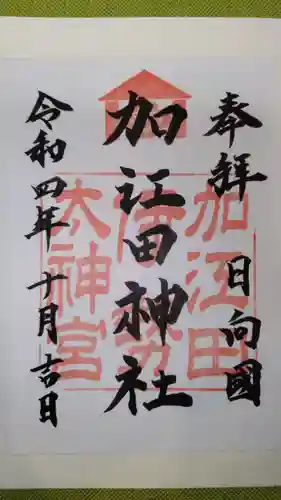 奉拝 日向國
加江田神社
令和四年 十月吉日
加江田
伊勢
太神宮